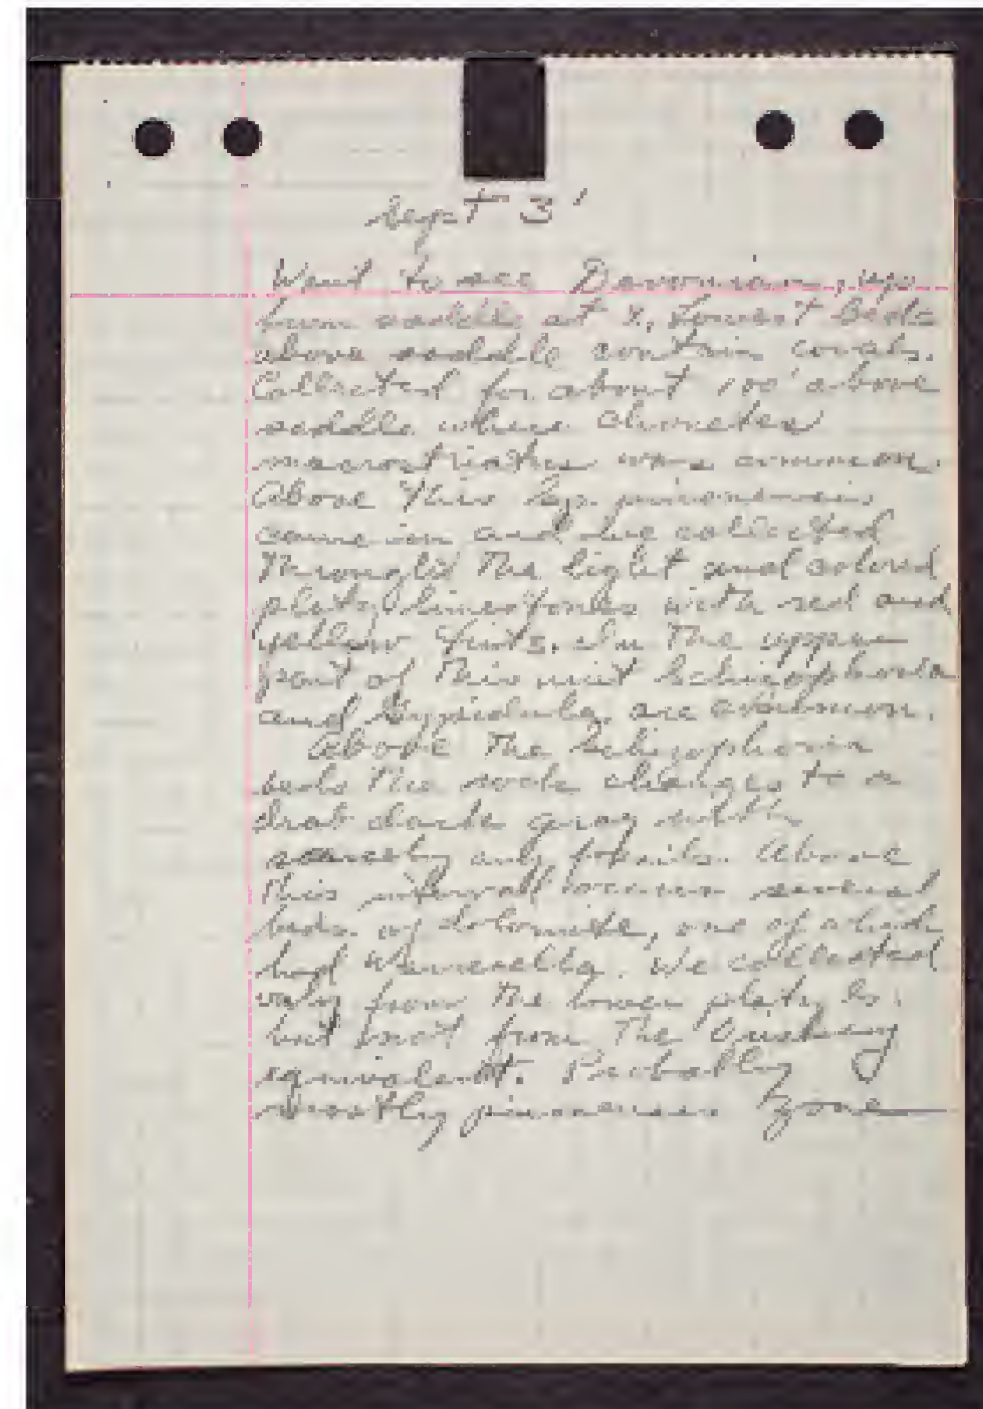 Sept 3
Went to see Devonian, up
from saddle at X. Lowest beds
above saddle contain corals.
Collected for about 100' above
saddle where Chonetes
macrostriatus was common.
Above this Sp. pinonensis
came in and we collected
through the light and colored
platy limestones with red and
yellow tints. In the upper
part of this unit Schizophoria
and Gypidula are common.
Above the Schizophoria
beds the rock changes to a
drab dark gray with
scarcely any fossils. Above
this intervall occurs several
beds of dolomite, one of which
had Warrenella. We collected
only from the lower platy ls.
but not from the
equivalent. Probably
mostly pinonensis zone